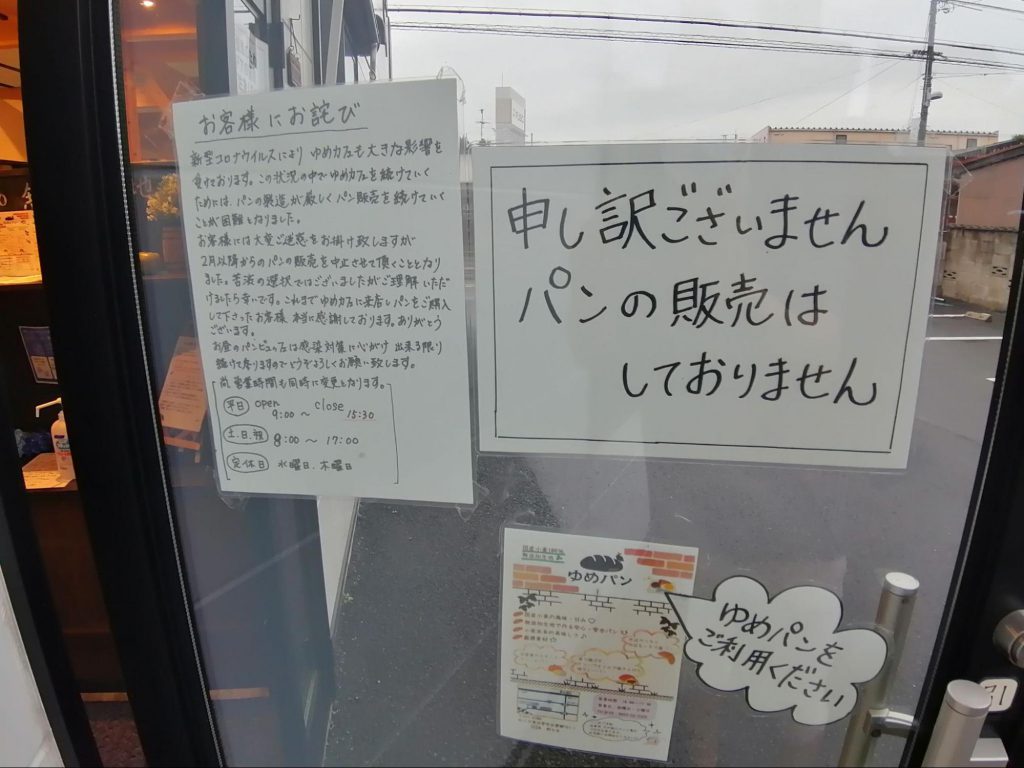 お客様にお詫び
新型コロナウイルスにより ゆめカフェも大きな影響を
受けております。この状況の中でゆめカフェを続けていく
ためには、パンの製造が厳しくパン販売を続けていく
ことが困難となりました。
お客様には大変ご迷惑をお掛け致しますが
2月以降からのパンの販売を中止させて頂くこととなり
ました。苦渋の選択ではございましたがご理解いただ
けましたら幸いです。これまでゆめカフェに来店しパンをご購入
して下さったお客様 本当に感謝しております。ありがとう
ございます。
お昼のパンビュッフェは感染対策に心がけ 出来る限り
続けて参りますのでどうぞよろしくお願い致します。
尚、営業時間も同時に変更となります。
平日 open 9:00 〜 close 15:30
土.日.祝 8:00 〜 17:00
定休日 水曜日.木曜日
申し訳ございません
パンの販売は
しておりません
国産小麦100%
無添加生地
ゆめパン
ゆめパンを
ご利用ください
引